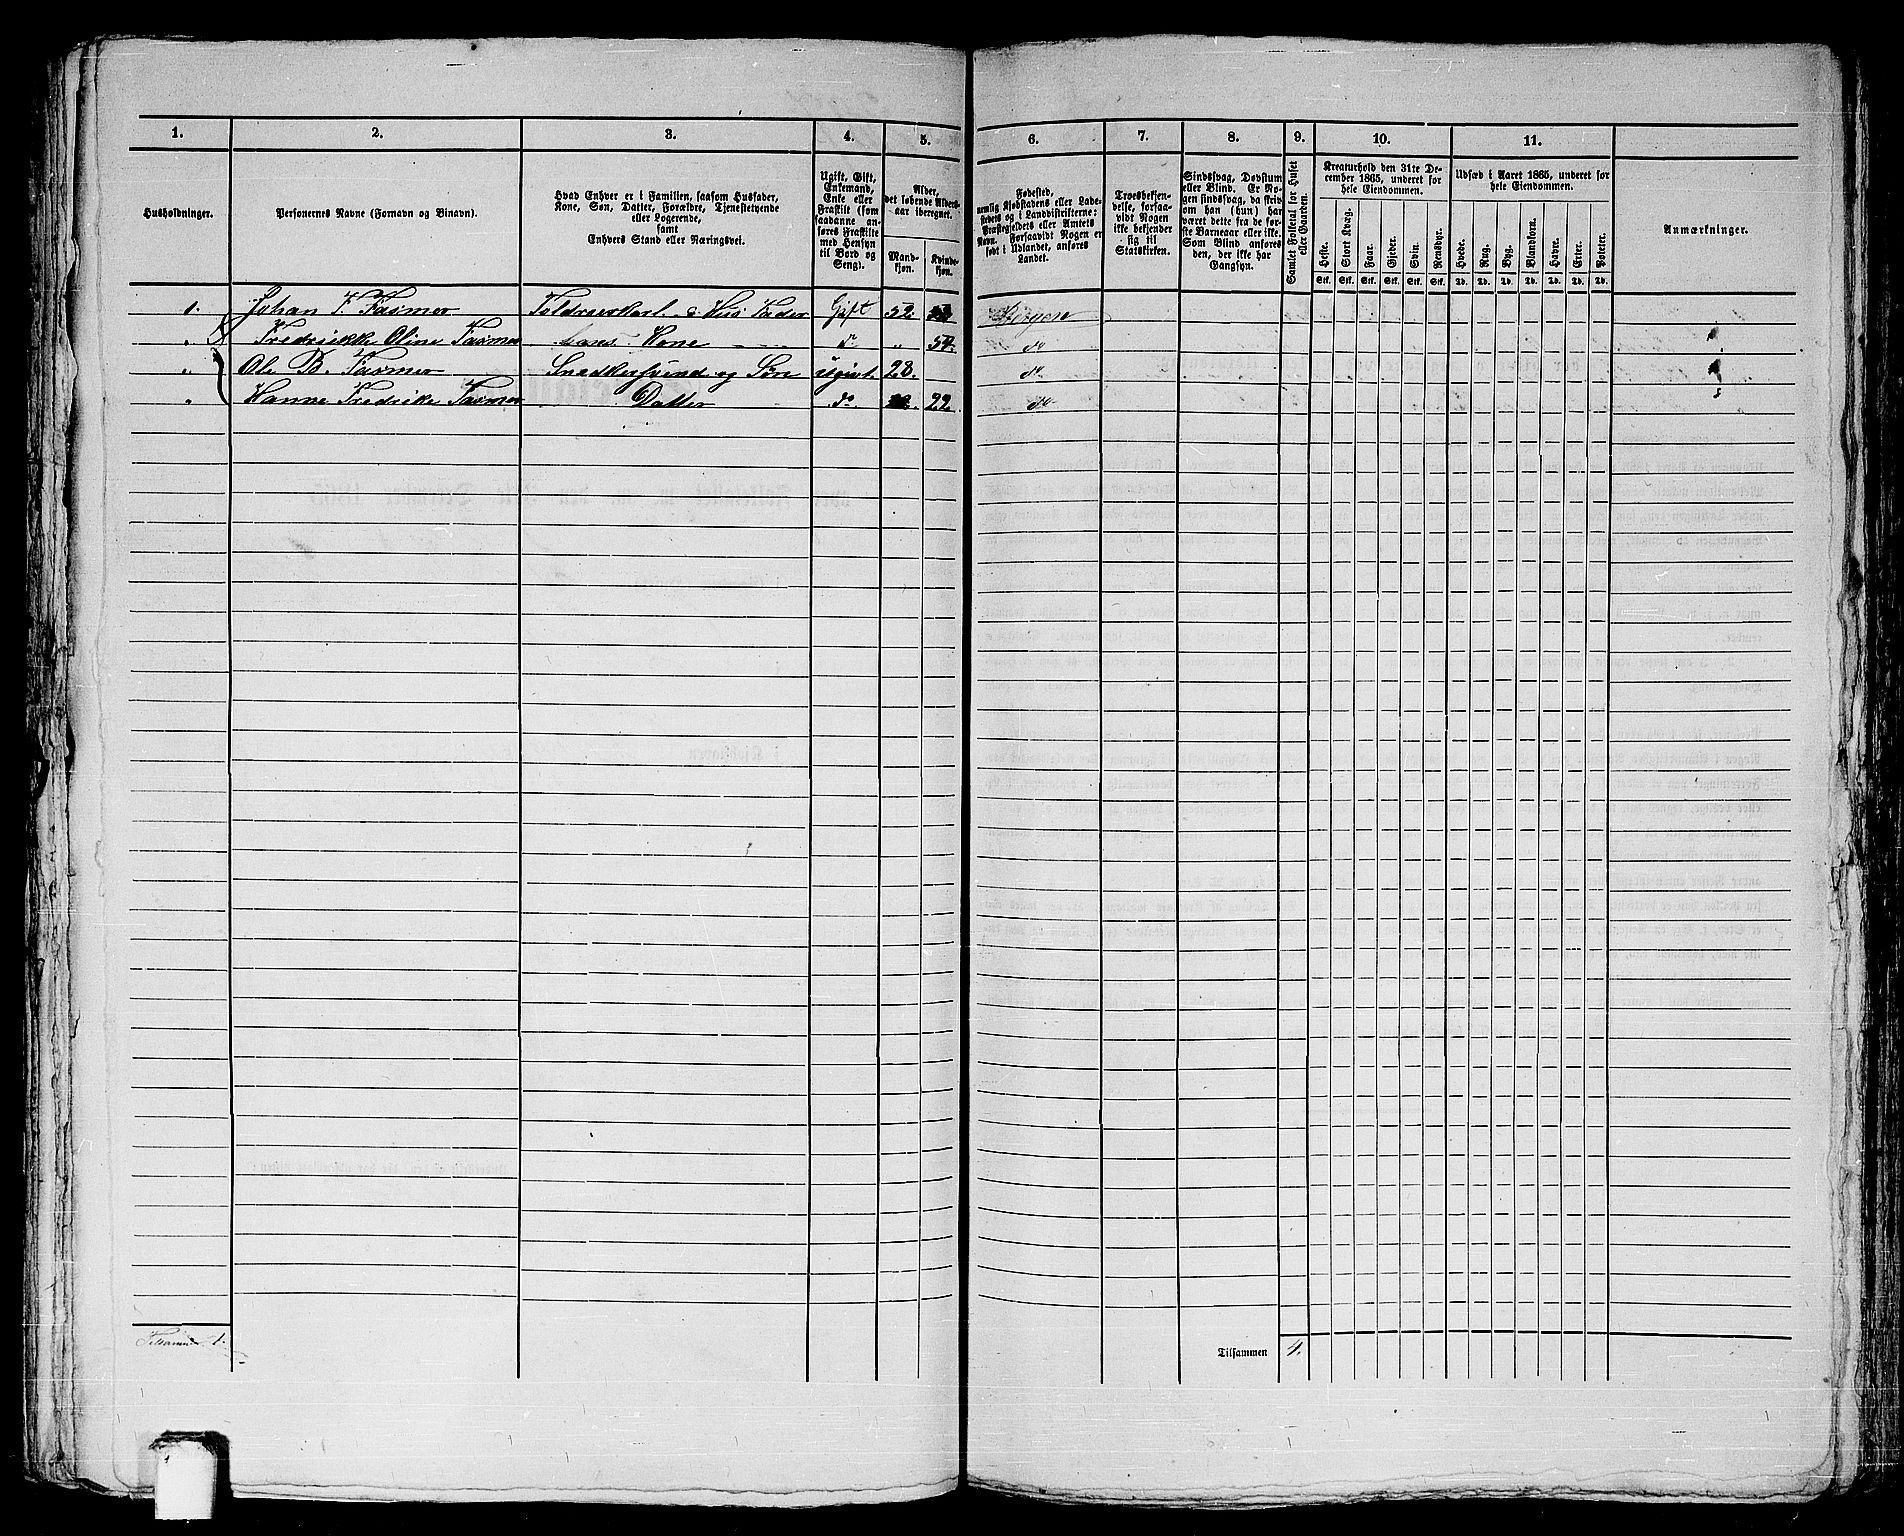 1. 2. 3. 4. 5. 6. 7. 8. 9. 10. 11.
Husholdninger.
Personernes Navne (Fornavn og Binavn).
Hvad Enhver er i Familien, saasom Husfader,
Kone, Søn, Datter, Forældre, Tjenestetyende
eller Logerende,
samt
Enhvers Stand eller Næringsvei.
Ugift, Gift,
Enkemand,
Enke eller
Fraskilt (som
saadanne an-
føres Fraskilte
med Hensyn
til Bord og
Seng).
Alder,
det løbende Alders-
aar iberegnet.
Mand-
kjøn.
Kvinde-
kjøn.
Fødested,
nemlig Kjøbstadens eller Lade-
stedets og i Landdistrikterne:
Præstegjeldets eller Amtets
Navn. Forsaavidt Nogen er
født i Udlandet, anføres
Landet.
Troesbekjen-
delse, forsaa-
vidt Nogen
ikke bekjender
sig til
Statskirken.
Sindssvag, Døvstum
eller Blind. Er No-
gen sindssvag, da skriv
om han (hun) har
været dette fra de før-
ste Barneaar eller ikke.
Som Blind anføres
den, der ikke har
Gangsyn.
Samlet Folketal for Huset
eller Gaarden.
Kreaturhold den 31te De-
cember 1865, underet for
hele Eiendommen.
Heste. Stort Kvæg. Faar. Gjeder. Svin. Rensdyr.
Stk. Stk. Stk. Stk. Stk. Stk.
Udsæd i Aaret 1865, underet for
hele Eiendommen.
Hvede. Rug. Byg. Blandkorn. Havre. Erter. Poteter.
Td. Td. Td. Td. Td. Td. Td.
Anmærkninger.
1. Johan F. Fasmer Toldroerkarl & Hus Fader Gift 52. Bergen
" Fredrikke Oline Fasmer Kone do " 54. do
" Ole B. Fasmer Snedkersvend og Søn ugivt. 28. do
" Hanne Fredrike Fasmer Datter do 22. do
Tilsammen 1.
Tilsammen 4.